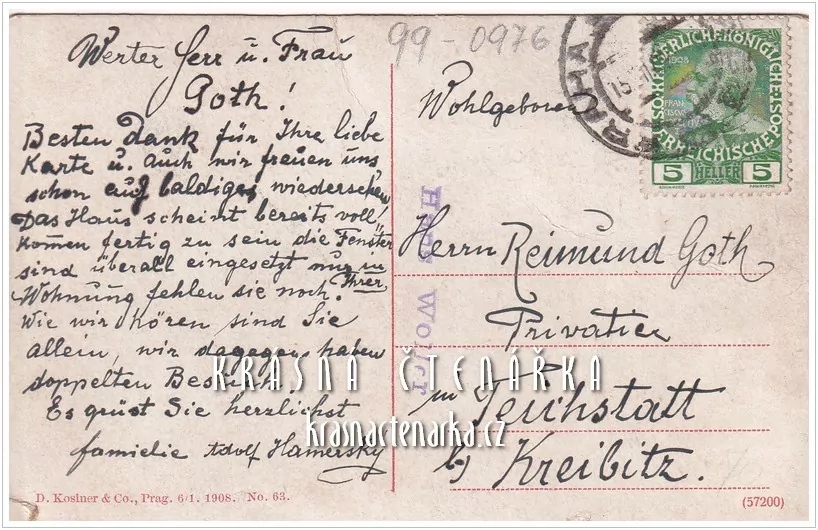 Werter Herr u. Frau
Goth!
Besten dank für Ihre liebe
Karte u. Auch wir freuen uns
schon auf baldiges wiedersehen
Das Haus scheint bereits voll
komen fertig zu sein die Fenster
sind überall eingesetzt nur in
Ihrer
Wohnung fehlen sie noch.
Wie wir hören sind Sie
allein, wir dagegen haben
doppelten Besuch.
Es grüst Sie herzlichst
familie Adolf Hamersky
99-0976
Wohlgeboren
Herrn Reimund Goth
Privatier
in Teichstatt
b/ Kreibitz.
1908
5 HELLER 5
Hans Wolier
KRÁSNÁ ČTENÁŘKA
krasnactenarka.cz
D. Kosiner & Co., Prag. 6/1. 1908. No. 63.
(57200)